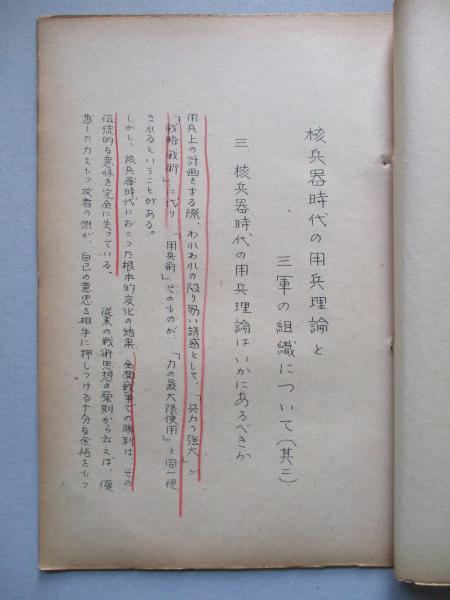 核兵器時代の用兵理論と
三軍の組織について(其三)
三、核兵器時代の用兵理論はいかにあるべきか
用兵上の計画をする際、われわれの陥り易い誘惑として、「兵力の強大」が
「戦略戦術」に代り「用兵術」そのものが、「力の最大限使用」と同一視
されるということがある。
しかし、核兵器時代におこった根本的変化の結果、全面戦争での勝利は、その
伝統的な意味を完全に失っている。 従来の戦術思想の原則から云えば、優
越した力をもつ攻者の側が、自己の意思を相手に押しつける十分な余裕をもつ